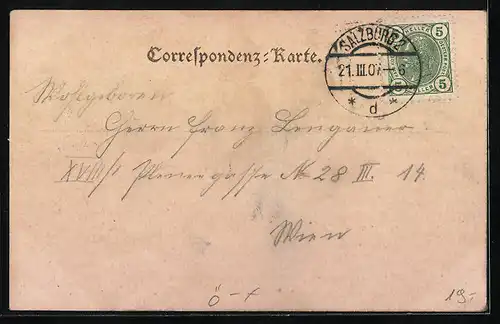 Correspondenz-Karte.
SALZBURG 2
21. III. 07 - 6
* d *
5 5
5 5
Wohlgeboren
Herrn Franz
XVIII/1 No 28 III. 14.
Wien
ö - x
19.-